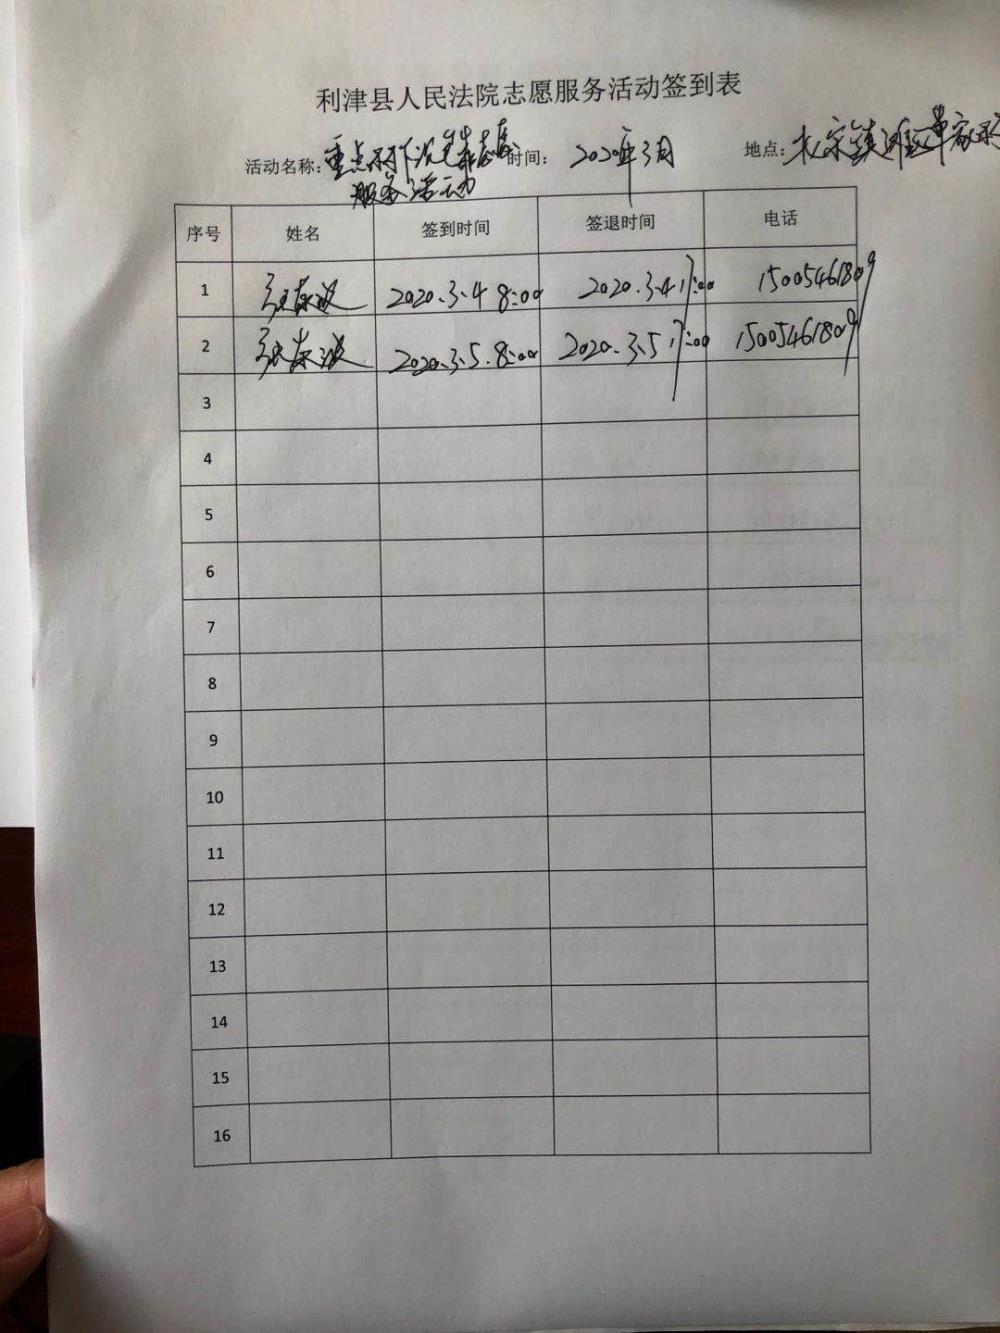 利津县人民法院志愿服务活动签到表
活动名称：重点 时间： 2020年3月 地点： 北宋镇
服务活动
序号 姓名 签到时间 签退时间 电话
1 张春波 2020.3.4 8:00 2020.3.4 17:00 15005461809
2 张春波 2020.3.5.8:00 2020.3.5 17:00 15005461809
3
4
5
6
7
8
9
10
11
12
13
14
15
16